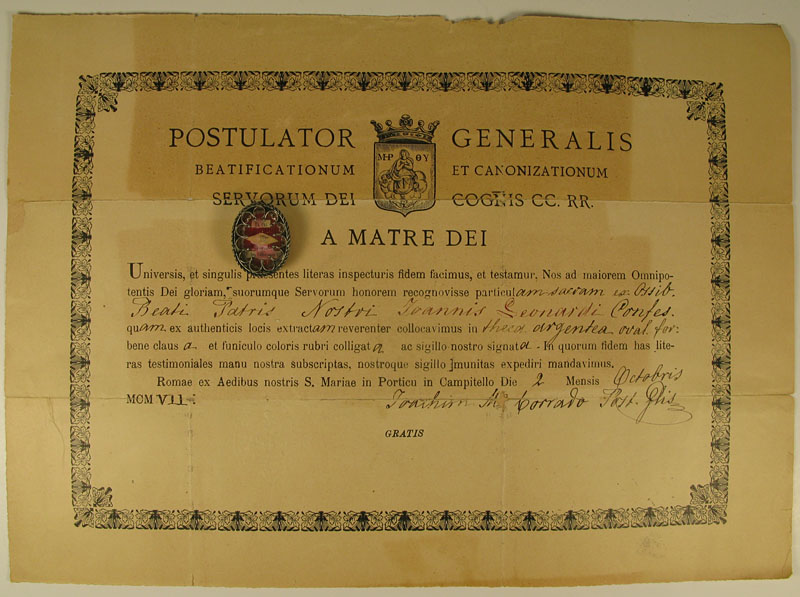 POSTULATOR GENERALIS
M-P ΘY
BEATIFICATIONUM ET CANONIZATIONUM
SERVORUM DEI COGNIS CC. RR.
A MATRE DEI
Universis, et singulis praesentes literas inspecturis fidem facimus, et testamur. Nos ad maiorem Omnipo-
tentis Dei gloriam, suorumque Servorum honorem recognovisse particulam sacram ex Ossib.
Beati Patris Nostri Ioannis Leonardi Confes.
quam ex authenticis locis extractam reverenter collocavimus in theca argentea oval. for:
bene clausa et funiculo coloris rubri colligata ac sigillo nostro signata. In quorum fidem has lite-
ras testimoniales manu nostra subscriptas, nostroque sigillo munitas expediri mandavimus.
Romae ex Aedibus nostris S. Mariae in Porticu in Campitello Die 2 Mensis Octobris
MCMVII.
Ioachim M. Corrado Post. Glis
GRATIS